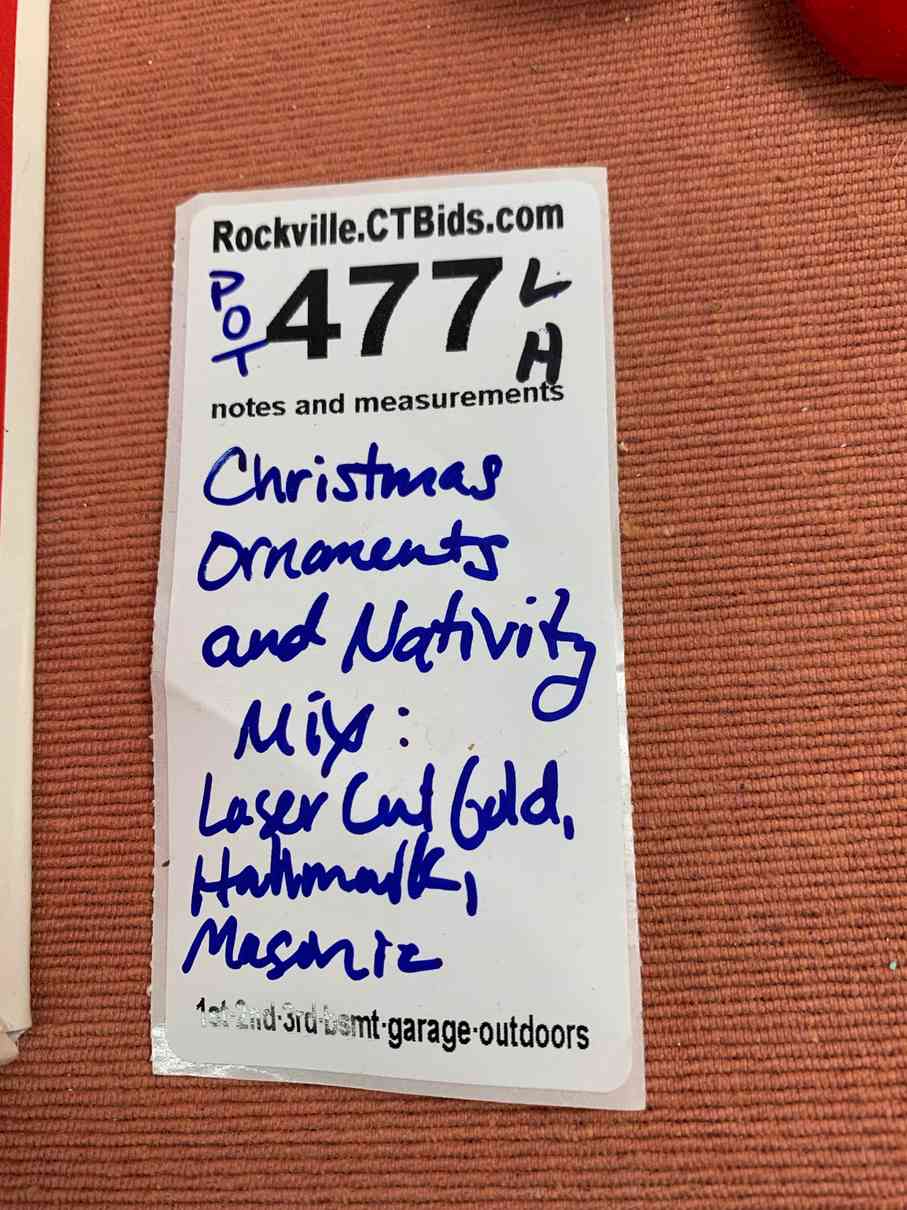 Rockville.CTBids.com
POT 477 LH
notes and measurements
Christmas
Ornaments
and Nativity
Mix:
Laser Cut Gold,
Hallmark,
Masonic
1st·2nd·3rd·bsmt·garage·outdoors